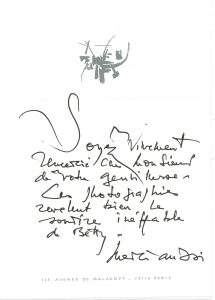 Soyez vivement
remercié cher Monsieur
de votre gentillesse.
Ces photographies
révèlent bien le
sourire ineffable
de Betty.
Merci aussi
123, AVENUE DE MALAKOFF - 75116 PARIS